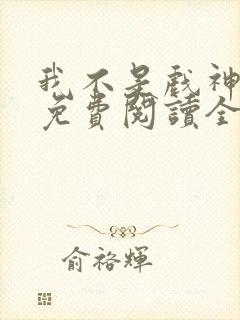 我不是戲神
免費閱讀全
俞裕輝